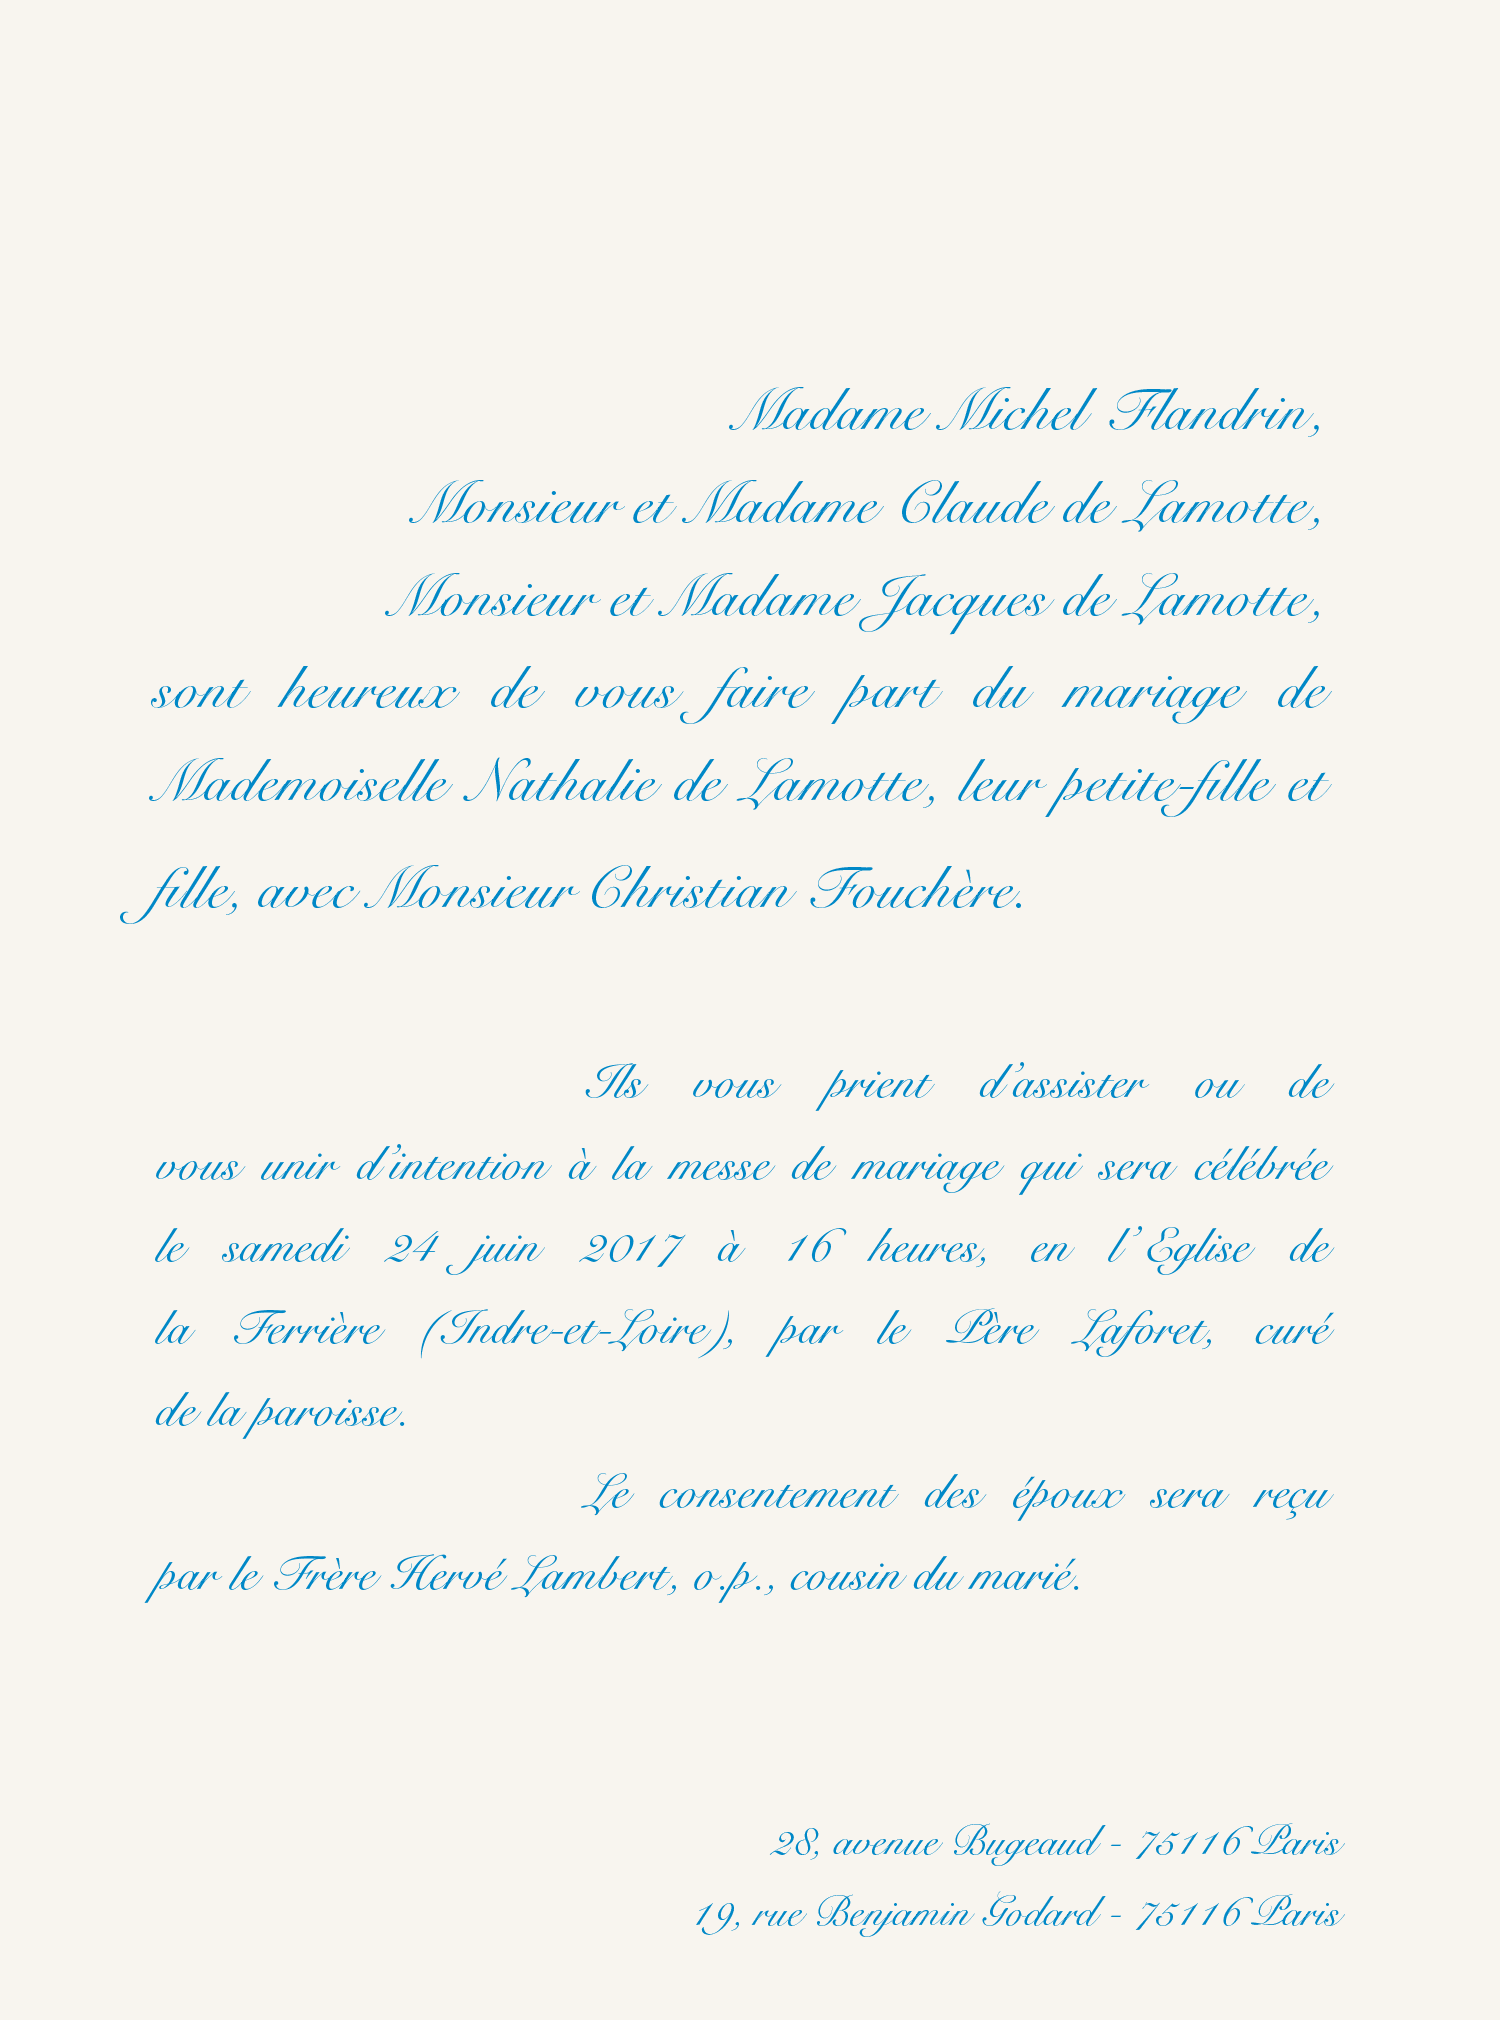 Madame Michel Flandrin,
Monsieur et Madame Claude de Lamotte,
Monsieur et Madame Jacques de Lamotte,
sont heureux de vous faire part du mariage de
Mademoiselle Nathalie de Lamotte, leur petite-fille et
fille, avec Monsieur Christian Fouchère.
Ils vous prient d’assister ou de
vous unir d’intention à la messe de mariage qui sera célébrée
le samedi 24 juin 2017 à 16 heures, en l’Eglise de
la Ferrière (Indre-et-Loire), par le Père Laforet, curé
de la paroisse.
Le consentement des époux sera reçu
par le Frère Hervé Lambert, o.p., cousin du marié.
28, avenue Bugeaud - 75116 Paris
19, rue Benjamin Godard - 75116 Paris